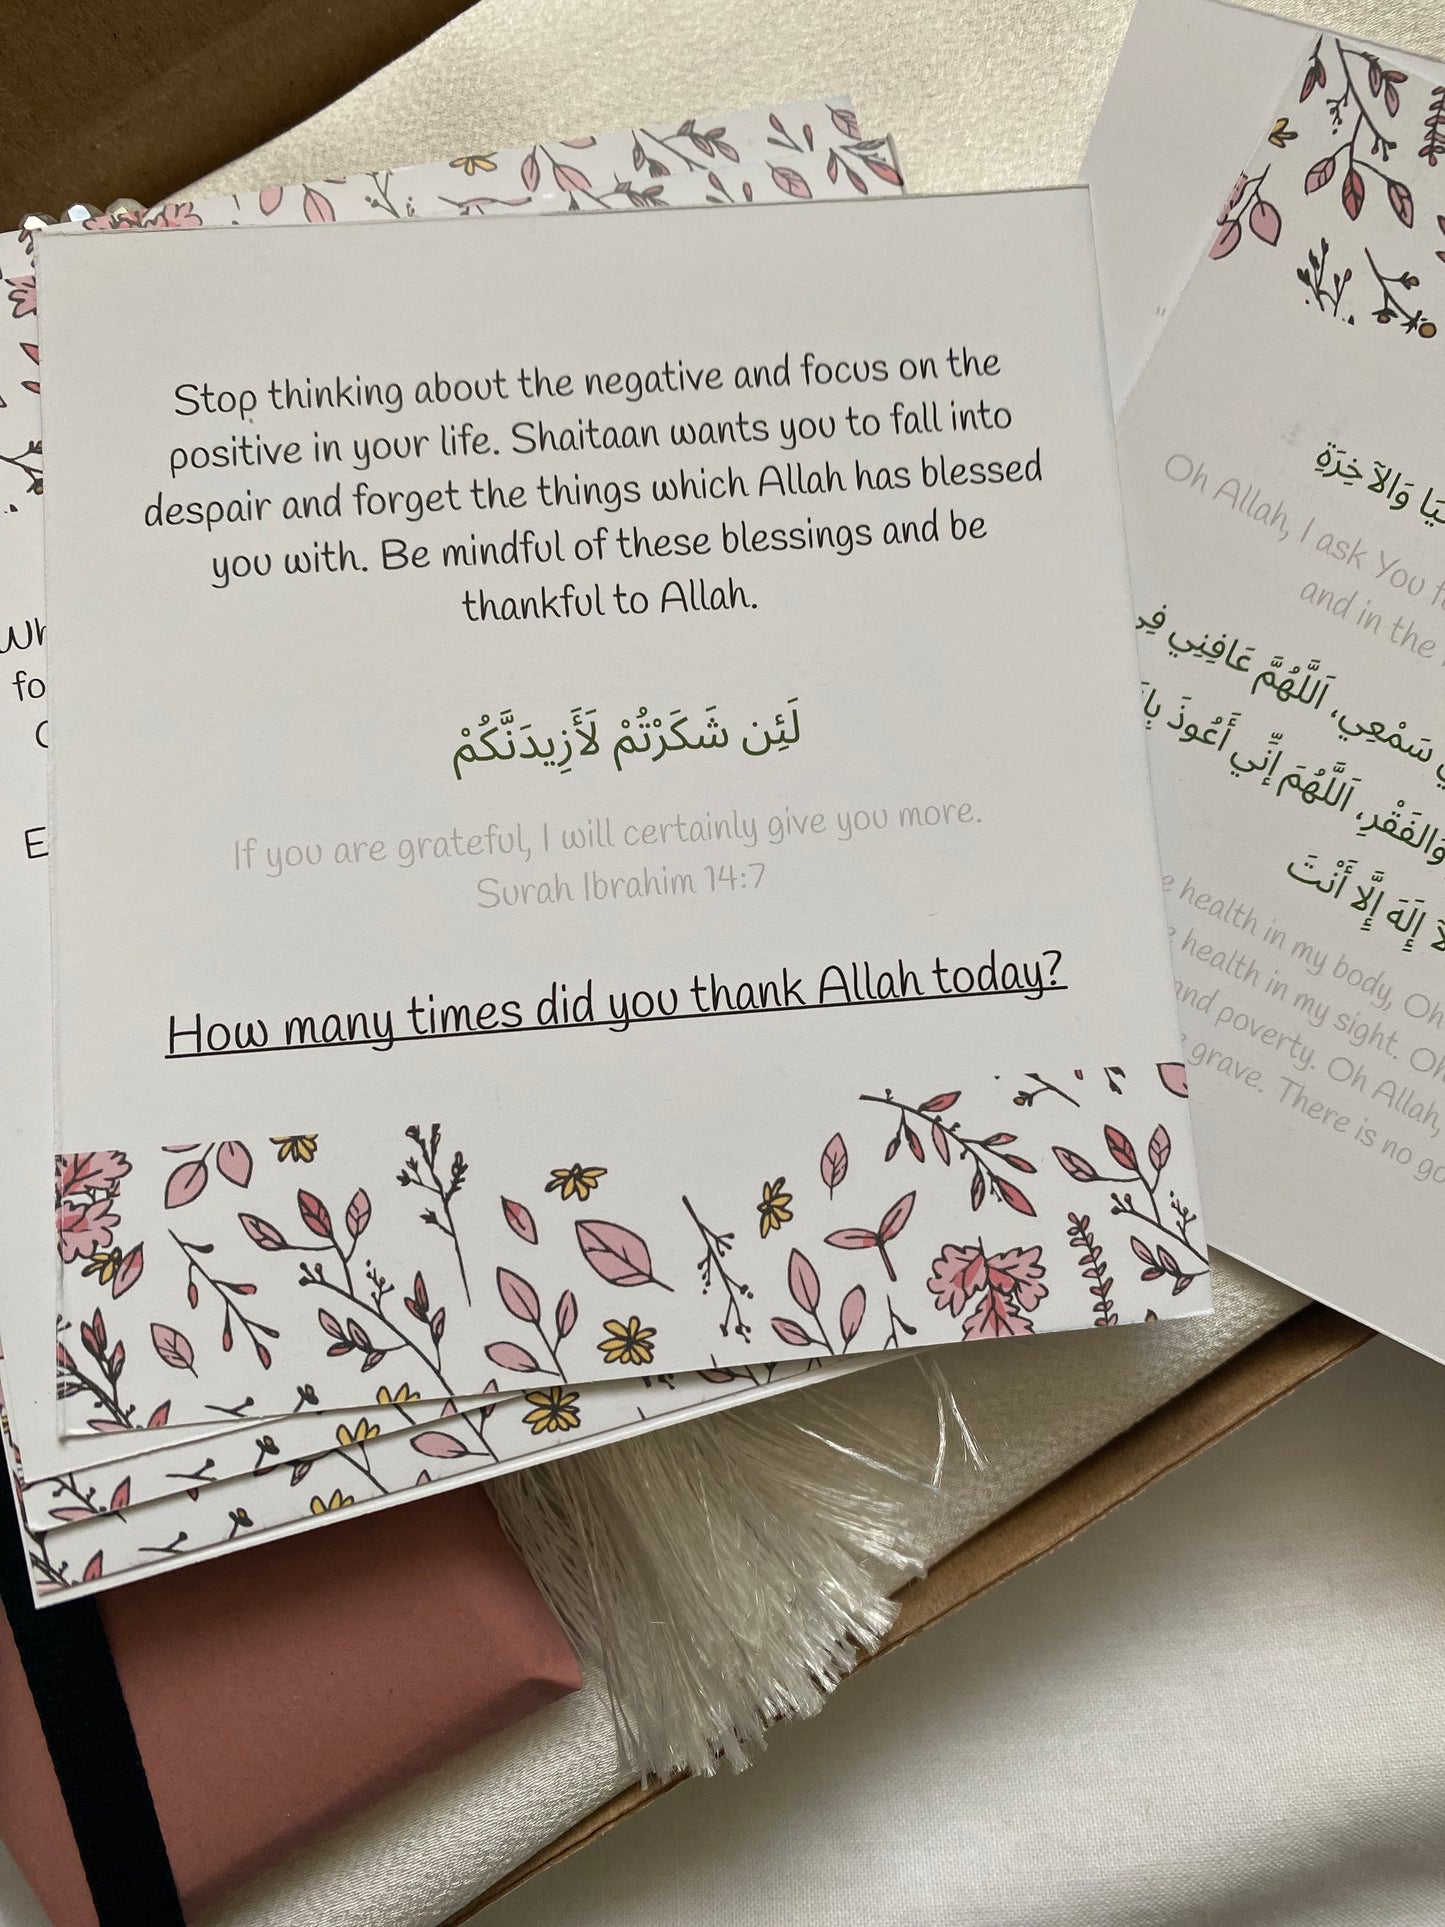 Stop thinking about the negative and focus on the
positive in your life. Shaitaan wants you to fall into
despair and forget the things which Allah has blessed
you with. Be mindful of these blessings and be
thankful to Allah.
لَئِن شَكَرْتُمْ لَأَزِيدَنَّكُمْ
If you are grateful, I will certainly give you more.
Surah Ibrahim 14:7
How many times did you thank Allah today?
وَالآخِرَةِ
Oh Allah, I ask You
and in the
اَللَّهُمَّ عَافِنِي فِي
سَمْعِي، اَللَّهُمَّ إِنِّي أَعُوذُ
وَالفَقْرِ،
لَا إِلَهَ إِلَّا أَنْتَ
health in my body, Oh
health in my sight. Oh
and poverty. Oh Allah,
grave. There is no